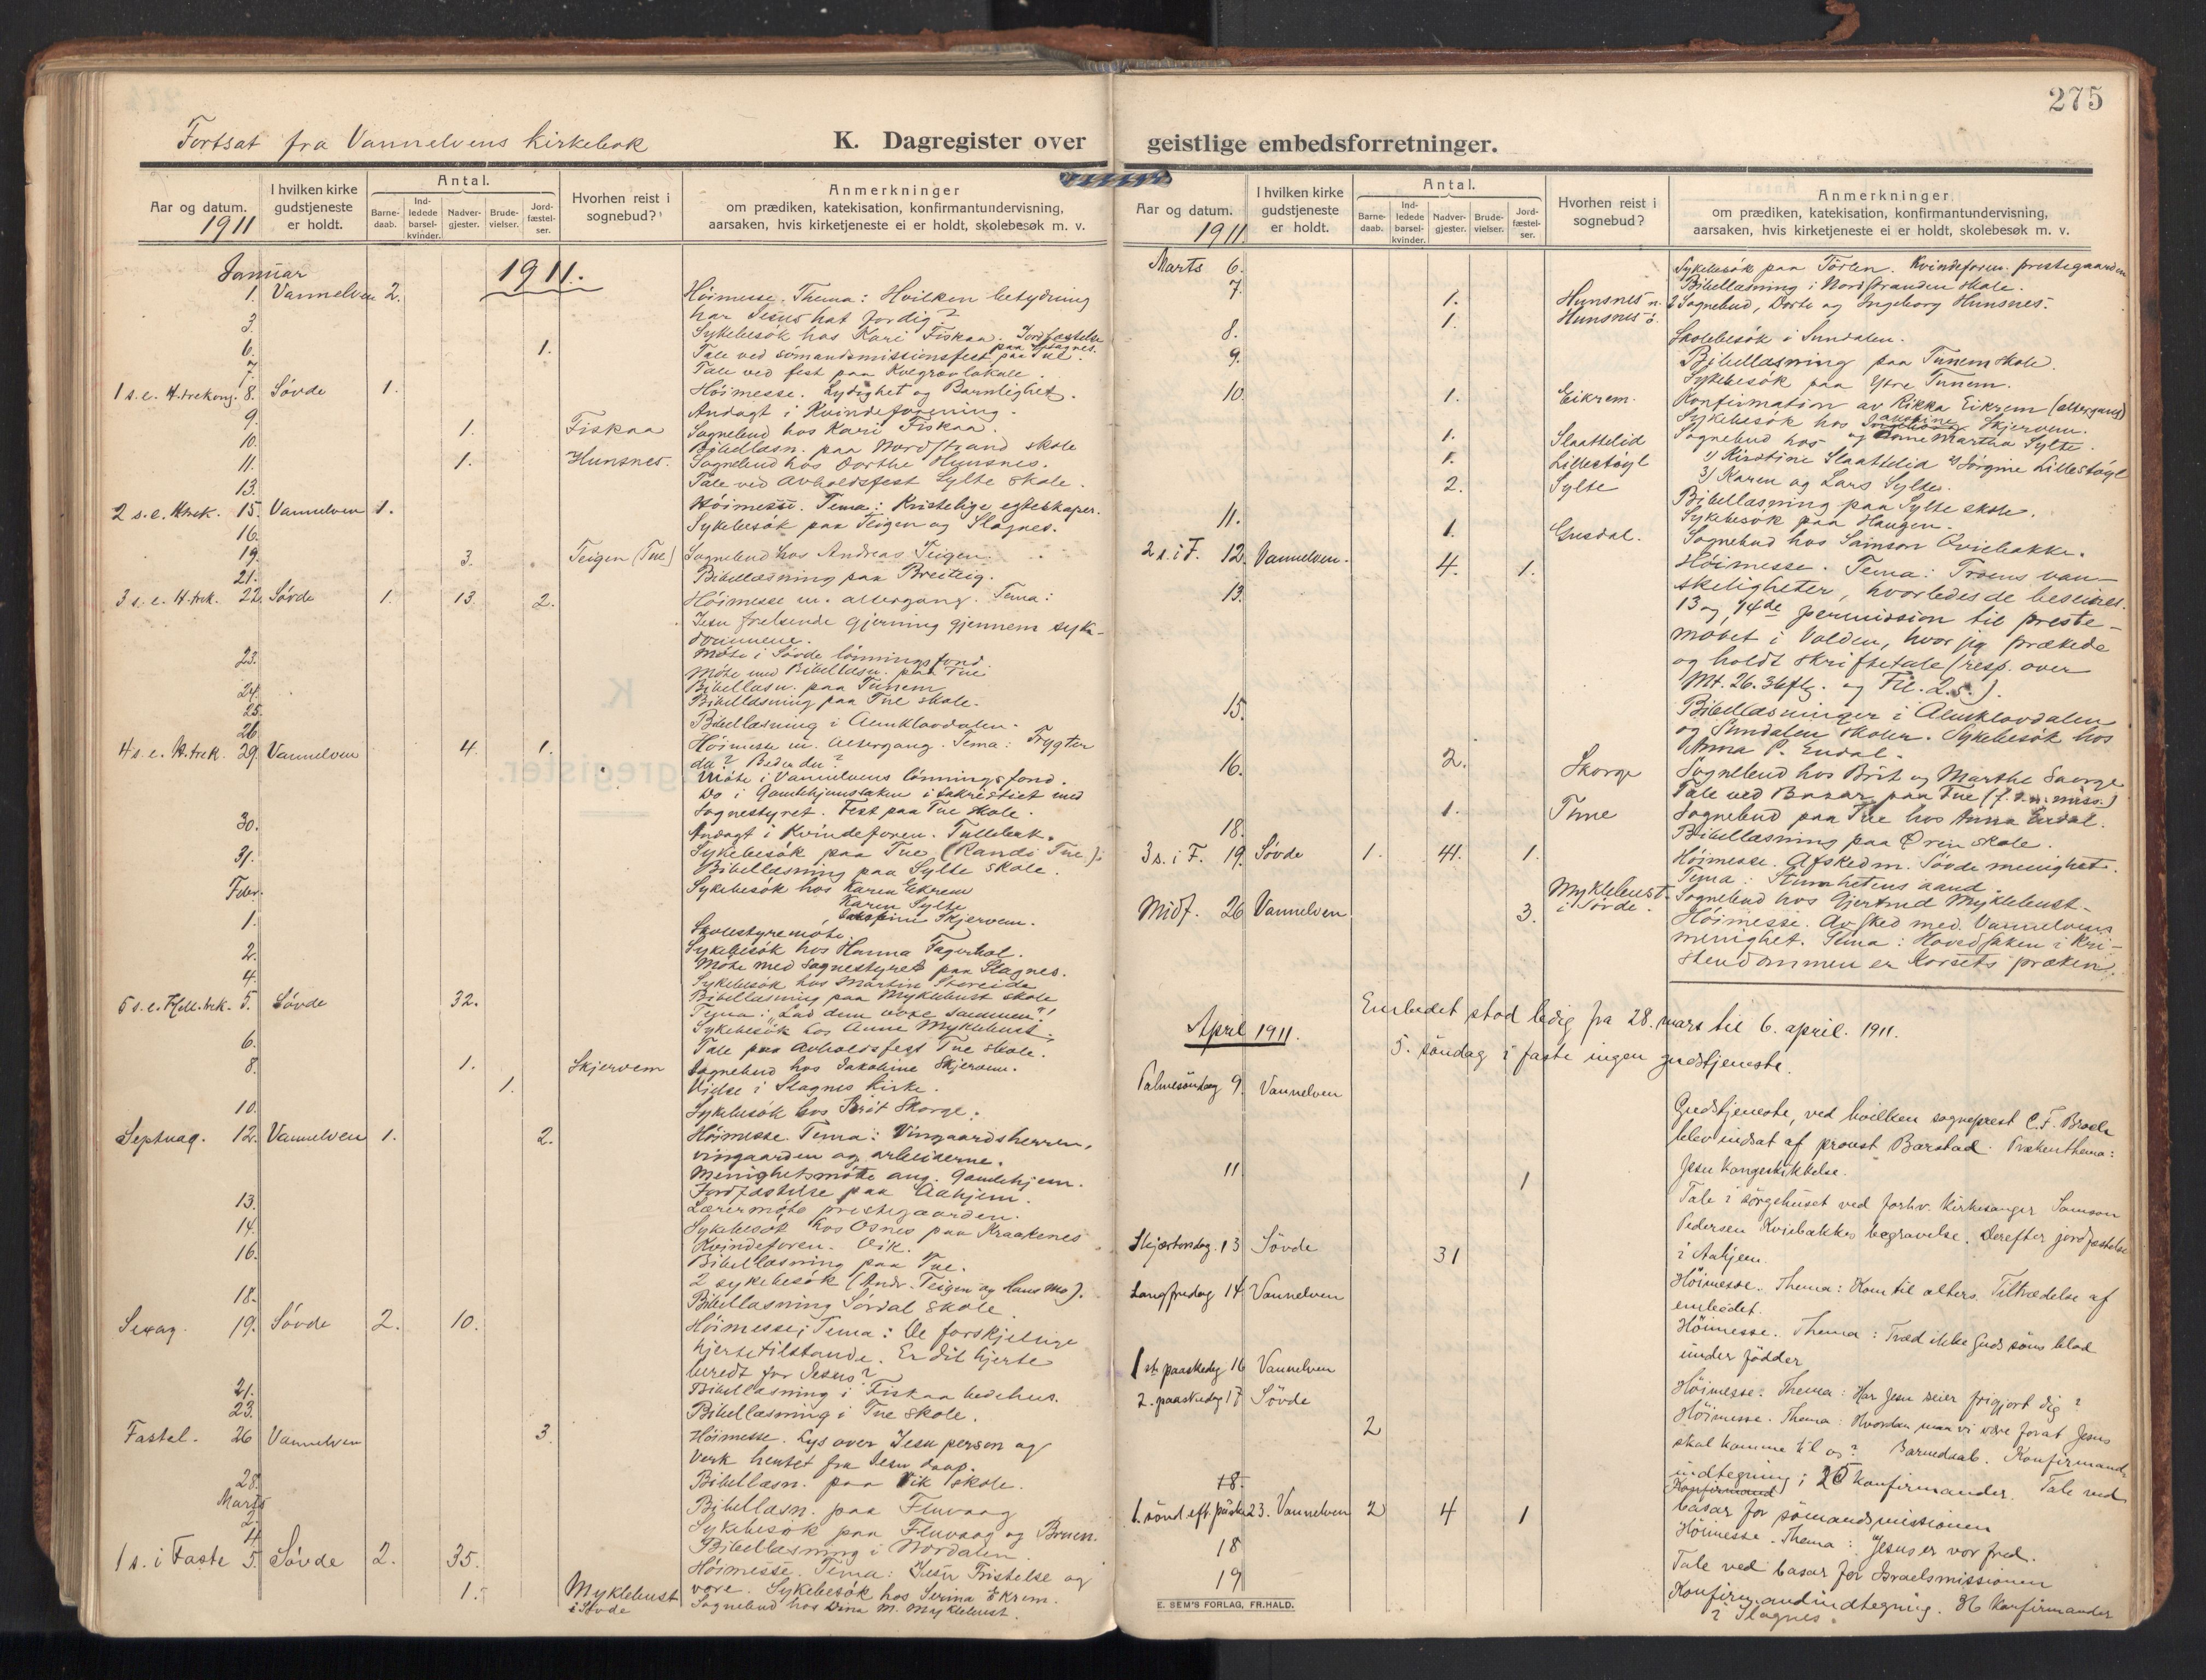 275
Fortsat fra Vannelvens kirkebok
K. Dagregister over geistlige embedsforretninger.
Aar og datum. 1911
I hvilken kirke gudstjeneste er holdt.
Antal.
Barne-daab.
Ind-ledede barsel-kvinder.
Nadver-gjester.
Brude-vielser.
Jord-fæstel-ser.
Hvorhen reist i sognebud?
Anmerkninger
om prædiken, katekisation, konfirmantundervisning,
aarsaken, hvis kirketjeneste ei er holdt, skolebesøk m. v.
Januar 1911.
1. Vannelven 2. Høimesse. Thema: Hvilken betydning
har Jesus hat for dig?
3. Sykebesök hos Kari Fiskaa. Jordfæstelse
6. 1. Tale ved sömandsmissionsfest paa Tue.
7. Tale ved fest paa lokale.
1 s. e. H.trekong. 8. Søvde 1. Höimesse. Lydighet og Barnlighet.
9. Andagt i Kvindeforening.
10. 1. Fiskaa Sognebud hos Kari Fiskaa.
Bibellæsn. paa Nordstrand skole
11. 1. Hunsnes. Sognebud hos Dorthe Hunsnes.
13. Tale ved Avholdsfest Sylte skole.
2 s. e. H.trek. 15. Vannelven 1. Höimesse. Tema: Kristelige egteskaper.
16. Sykebesök paa Teigen og Slagnes.
19. 3. Teigen (Tue) Sognebud hos Andreas Teigen.
21. Bibellæsning paa Breiteig.
3 s. e. H.trek. 22. Søvde 1. 13 2. Höimesse m. altergang. Tema:
Jesu frelsende gjerning gjennem syk-
dommene.
23. Möte i Søvde lönningsfond.
Möte med Bibellæsn. paa Tue
24. Bibellæsn. paa Tunem
25. Bibellæsning paa Tue skole.
26. Bibellæsning i Almklovdalen.
4 s. e. H.trek. 29. Vannelven 4. 1. Höimesse m. altergang. Tema: Frygter
du? Beder du?
Möte i Vannelvens lönningsfond.
Do i Gamlehjemssaken i sakristiet med
Sognestyret. Fest paa Tue skole.
30. Andagt i Kvindeforen. Tullebak.
Sykebesök paa Tue (Randi Tue).
31. Bibellæsning paa Sylte skole.
Febr. Sykebesök hos Karen Eikrem
Karen Sylte
Jakobine Skjervem.
1. Skolestyremöte.
2. Sykebesök hos Hanna Fagerhol.
Möte med Sognestyret paa Slagnes.
4. Sykebesök hos Martin Storeide
Bibellæsning paa Myklebust skole
5 s. e. H.trek. 5. Søvde 32. Tema: "Lad dem voxe sammen"!
Sykebesök hos Anne Myklebust.
6. Tale paa Avholdsfest Tue skole.
8. 1. Skjervem Sognebud hos Jakobine Skjervem.
1. Vielse i Slagnes kirke.
10. Sykebesök hos Brit Skorge.
Septuag. 12. Vannelven 1. 2. Höimesse. Tema: Vingaardsherren,
vingaarden og arbeiderne.
Menighetsmöte ang. Gamlehjem.
Jordfæstelse paa Aahjem.
13. Lærermöte prestegaarden.
14. Sykebesök hos Osnes paa Kraakenes
Kvindeforen. Vik.
16. Bibellæsning paa Tue.
2 sykebesök (Andr. Teigen og Hans Mo).
18. Bibellæsning Sördal skole
Sexag. 19. Søvde 2. 10. Höimesse; Tema: De forskjellige
hjertetilstande. Er dit hjerte
beredt for Jesus?
21. Bibellæsning i Fiskaa bedehus.
23. Bibellæsning i Tue skole.
Fastel. 26 Vannelven 3. Höimesse. Lys over Jesu person og
verk hentet fra Jesu daap.
28. Bibellæsn. paa Vik skole.
Marts
2. Bibellæsn. paa Fluvaag
Sykebesök paa Fluvaag og Bruen.
4. Bibellæsning i Nordalen
1 s. i Faste 5. Søvde 2. 35. Höimesse. Tema: Jesu Fristelse og
vore. Sykebesök hos Serina Ekrem.
1. Myklebust i Søvde Sognebud hos Dina M. Myklebust.
Aar og datum. 1911.
I hvilken kirke gudstjeneste er holdt.
Antal.
Barne-daab.
Ind-ledede barsel-kvinder.
Nadver-gjester.
Brude-vielser.
Jord-fæstel-ser.
Hvorhen reist i sognebud?
Anmerkninger
om prædiken, katekisation, konfirmantundervisning,
aarsaken, hvis kirketjeneste ei er holdt, skolebesøk m. v.
Marts 6. Sykebesök paa . Kvindeforen. prestegaarden
7. Bibellæsning i Nordstranden skole.
1. Hunsnes n. 2 Sognebud, Dorte og Ingeborg Hunsnes.
1. Hunsnes ö.
8. Skolebesök i Sundalen.
9. Bibellæsning paa Tunem skole.
Sykebesök paa Ytre Tunem.
10. 1. Eikrem. Konfirmation av Rikka Eikrem (altergang)
Sykebesök hos Skjervem.
og Anne Martha Sylte.
1. Slaattelid Sognebud hos
1. Lillestøyl 1) Kirstine Slaattelid 2) Jörgine Lillestøyl
2. Sylte 3) Karen og Lars Sylte.
Bibellæsning paa Sylte skole.
11. Sykebesök paa Haugen.
1. Gusdal. Sognebud hos Samson Qviebakke.
2 s. i F. 12. Vannelven. 4. 1. Höimesse. Tema: Troens van-
skeligheter, hvorledes de beseires.
13. 13 og 14de permission til preste-
möbet i Volden, hvor jeg prækede
og holdt skriftetale (resp. over
Mt. 26.36flg. og Fil. 2.5.).
15. Bibellæsninger i Almklovdalen
og Sundalen skoler. Sykebesök hos
Anna P. Endal.
16. 2. Skorge Sognebud hos Brit og Marthe Skorge
Tale ved Bazar paa Tue
1. Tune Sognebud paa Tue hos Anna Endal.
18. Bibellæsning paa Ören skole.
3 s. i F. 19. Søvde 1. 41. 1. Höimesse. Afsked m. Søvde menighet.
Tema: Stumhetens aand
Myklebust i Søvde. Sognebud hos Gjertrud Myklebust.
Midf. 26 Vannelven 3. Höimesse. Avsked med Vannelvens
menighet. Tema: Hovedsaken i kri-
stendommen er Korsets præken.
Embedet stod ledig fra 28. mars til 6. april. 1911.
April 1911.
5. söndag i faste ingen gudstjeneste.
Palmesöndag 9. Vannelven Gudstjeneste, ved hvilken sogneprest C. F. Broch
blev indsat af provst Barstad. Prækenthema:
Jesu kongeskikkelse.
11 1 Tale i sörgehuset ved forhv. kirkesanger Samson
Pedersen Kviebakkes begravelse. Derefter jordfæstelse
i Aahjem.
Skjærtorsdag. 13 Søvde 31 Höimesse. Thema: Kom til alters. Tiltrædelse af
embedet.
Langfredag 14 Vannelven Höimesse. Thema: Træd ikke Guds söns blod
under födder
1ste paaskedag 16 Vannelven Höimesse. Thema: Har Jesu seier frigjort dig?
2. paaskedag 17 Søvde 2 Höimesse. Thema: Hvordan maa vi være forat Jesus
skal komme til os? Barnedaab. Konfirmand-
indtegning; 25 konfirmander. Tale ved
18. Konfirmand basar for sömandsmissionen
1. sönd. eft. påske 23. Vannelven 2 4 1 Höimesse. Thema: Jesus er vor fred.
18 Tale ved basar for Israelsmissionen
19 Konfirmandindtegning. 36 konfirmander
i Slagnes.
E. SEM'S FORLAG, FR.HALD.